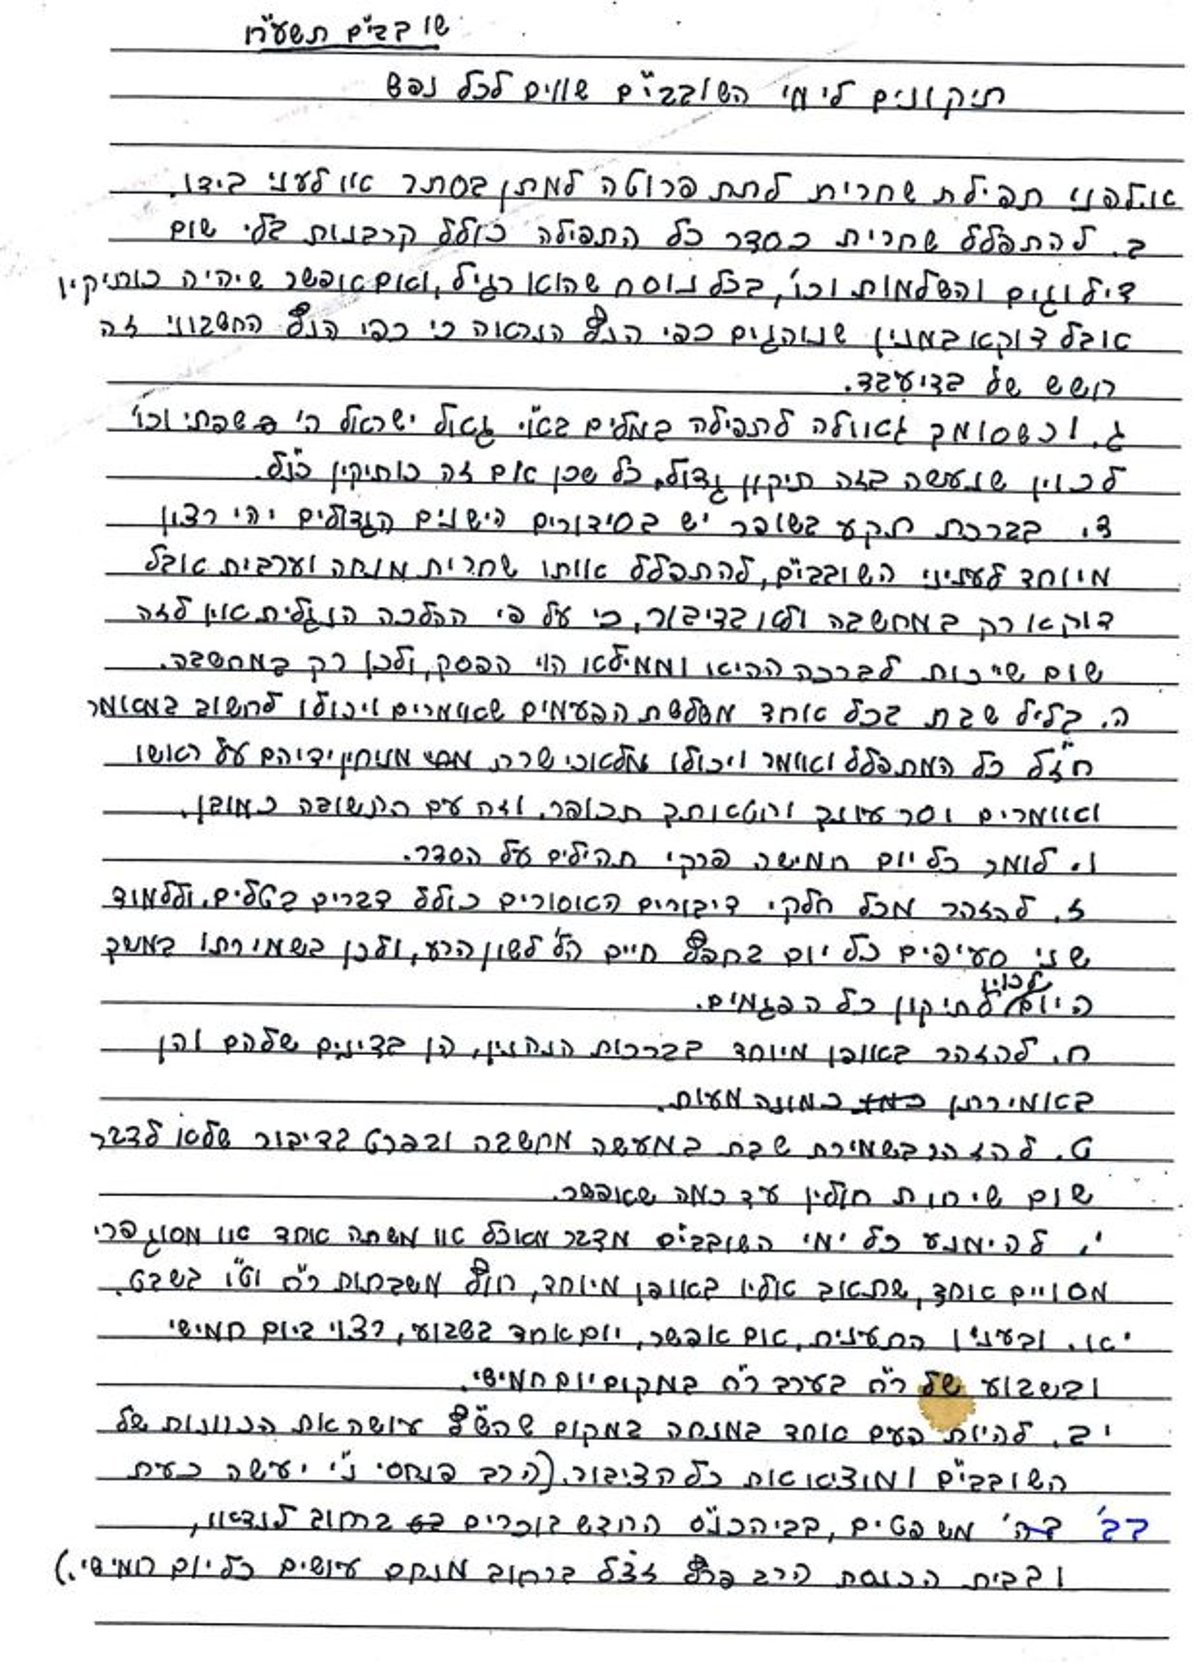 שובבי"ם תשע"ח
תיקונים לימי השובבי"ם שווים לכל נפש
א. לפני תפילת שחרית לתת פרוטה למתן בסתר או לעני בידו.
ב. להתפלל שחרית כסדר כל התפילה כולל קרבנות בלי שום
דילוגים והשלמות וכו', בכל נוסח שהוא רגיל, ואם אפשר שיהיה כותיקין
אבל דוקא במנין שנוהגים כפי הנץ הנראה כי כפי הנץ החשבוני זה
חשש של בדיעבד.
ג. וכשסומך גאולה לתפילה במלים בא"י גאל ישראל ה' שפתי וכו'
לכוין שנעשה בזה תיקון גדול, כל שכן אם זה כותיקין כנ"ל.
ד. בברכת תקע בשופר יש בסידורים הישנים הגדולים יהי רצון
מיוחד לעניני השובבי"ם, להתפלל אותו שחרית מנחה וערבית אבל
דוקא רק במחשבה ולא בדיבור, כי על פי ההלכה הנגלית אין לזה
שום שייכות לברכה ההיא וממילא הוי הפסק, ולכן רק במחשבה.
ה. בליל שבת בכל אחד משלשת הפעמים שאומרים ויכולו לחשוב במאמר
חז"ל כל המתפלל ואומר ויכולו מלאכי שרת מניחין ידיהם על ראשו
ואומרים וסר עוונך וחטאותך תכופר. וזה עם התשובה כמובן.
ו. לומר כל יום חמישה פרקי תהילים על הסדר.
ז. להזהר מכל חלקי דיבורים האסורים כולל דברים בטלים. וללמוד
שני סעיפים כל יום בחפץ חיים הל' לשון הרע, ולכן בשמירתו במשך
היום לכוין לתיקון כל הפגמים.
ח. להזהר באופן מיוחד בברכות הנהנין, הן בדינים שלהם והן
באמירתן כמונה מעות.
ט. להזהר בשמירת שבת במעשה מחשבה ובפרט בדיבור שלא לדבר
שום שיחות חולין עד כמה שאפשר.
י. להימנע כל ימי השובבי"ם מדבר מאכל או משתה אחד או מסוג פרי
מסויים אחד, שתאב אליו באופן מיוחד, חוץ משבתות ר"ח וט"ו בשבט.
יא. ובענין התענית, אם אפשר, יום אחד בשבוע, רצוי ביום חמישי
ובשבוע של ר"ח בערב ר"ח במקום יום חמישי.
יב. להיות פעם אחד במנחה במקום שהש"ץ עושה את הכוונות של
השובבי"ם ומוציא את כל הציבור. (הרב פנחסי נ"י יעשה כעת
בב' משפטים, בביהכנ"ס החדש בוכרים ברחוב לנדאו,
ובבית הכנסת הרב זצ"ל ברחוב מנחם עושים כל יום חמישי.)